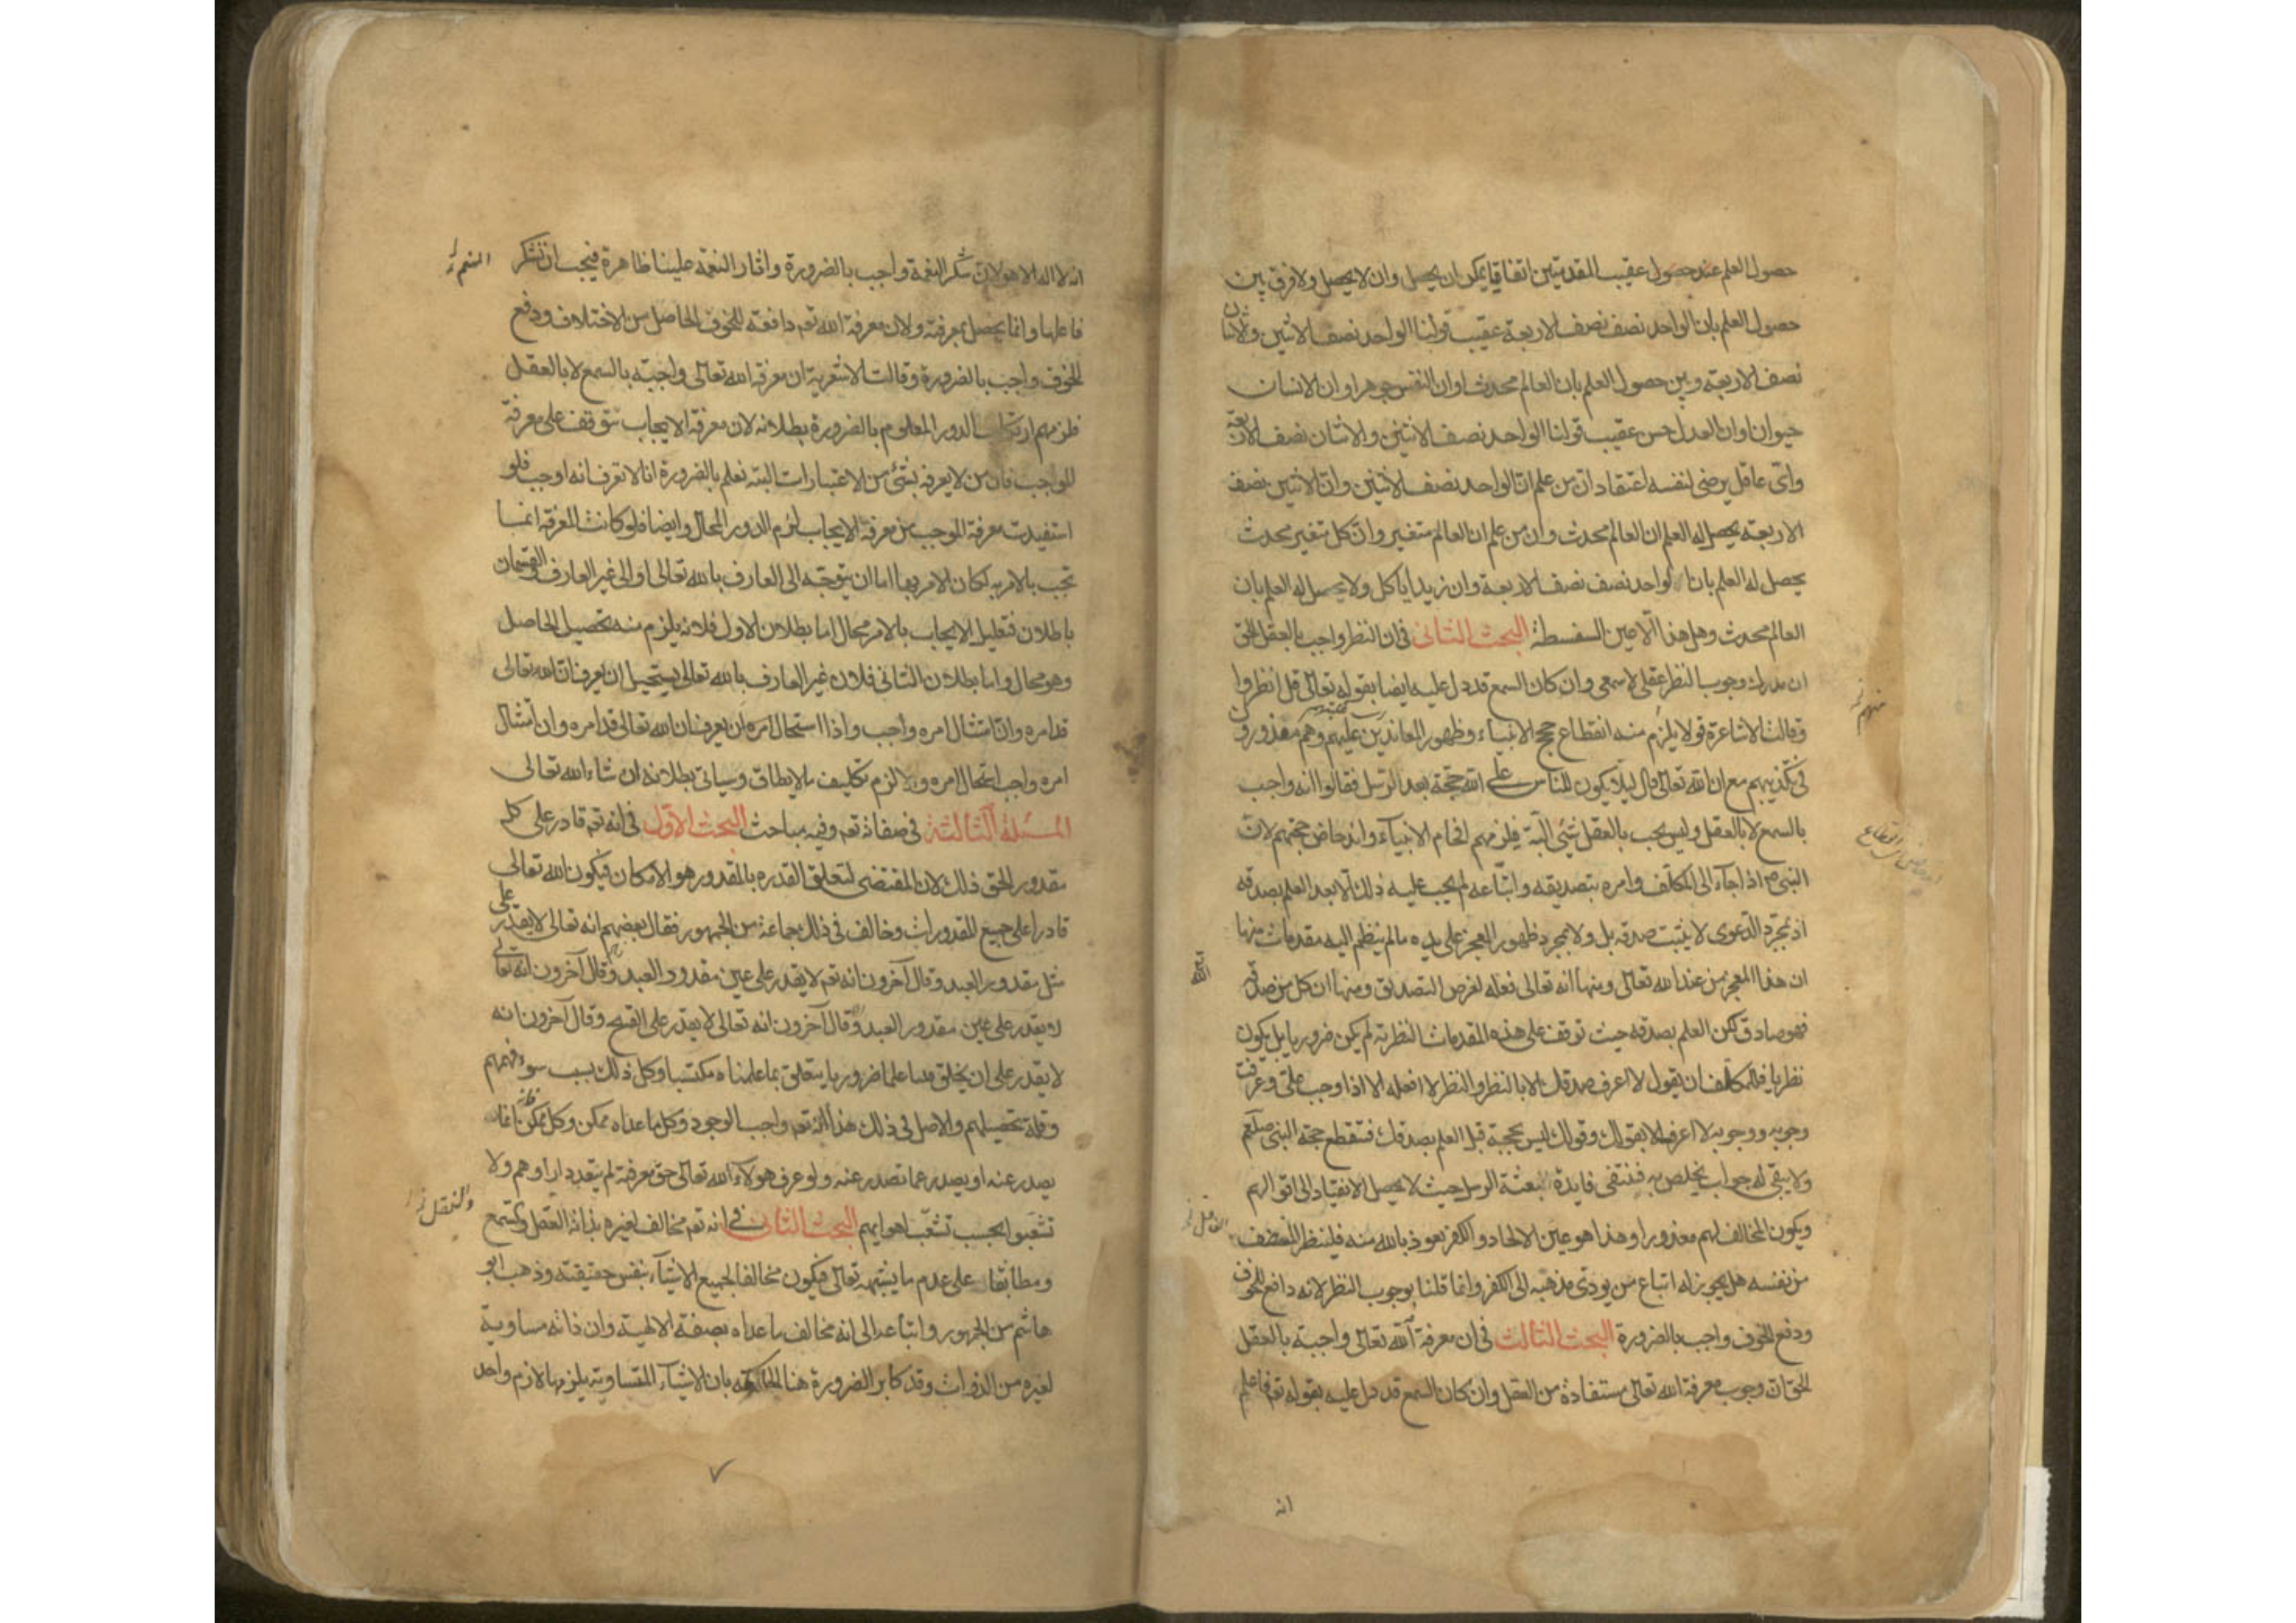 حصول العلم عند حصول عقيب المقدمتين اتفاقيا يمكن ان يحصل وان لا يحصل ولا فرق بين
حصول العلم بان الواحد نصف نصف الاربعة عقيب قولنا الواحد نصف الاثنين والاثنان
نصف الاربعة وبين حصول العلم بان العالم محدث او ان النفس جوهر او ان الانسان
حيوان او ان العدل حسن عقيب قولنا الواحد نصف الاثنين والاثنان نصف الاربعة
واى عاقل يرضى لنفسه اعتقاد ان من علم ان الواحد نصف الاثنين وان الاثنين نصف
الاربعة يحصل له العلم ان العالم محدث وان من علم ان العالم متغير وان كل متغير محدث
يحصل له العلم بان الواحد نصف نصف الاربعة وان زيدا ياكل ولا يحصل له العلم بان
العالم محدث وهل هذا الا عين السفسطة البحث الثانى فى ان النظر واجب بالعقل الحق
ان مدرك وجوب النظر عقلى لا سمعى وان كان السمع قد دل عليه ايضا بقوله تعالى قل انظروا
وقالت الاشاعرة قولا يلزم منه انقطاع حجج الانبياء وظهور المعاندين عليهم وهم معذورون
فى تكذيبهم مع ان الله تعالى قال ليلا يكون للناس على الله حجة بعد الرسل فقالوا انه واجب
بالسمع لا بالعقل وليس يجب بالعقل شئ البتة فيلزمهم افحام الانبياء واندحاض حجتهم لان
النبى اذا جاء الى المكلف وامره بتصديقه واتباعه لم يجب عليه ذلك الا بعد العلم بصدقه
اذ بمجرد الدعوى لا يثبت صدقه بل ولا بمجرد ظهور المعجز على يده ما لم ينظم اليه مقدمات منها
ان هذا المعجز من عند الله تعالى ومنها انه تعالى فعله لغرض التصديق ومنها ان كل من صدقه
فهو صادق لكن العلم بصدقه حيث توقف على هذه المقدمات النظرية لم يكن ضروريا بل يكون
نظريا فللمكلف ان يقول لا اعرف صدقك الا بالنظر والنظر لا افعله الا اذا وجب على وعرفت
وجوبه ووجوبه لا اعرفه الا بقولك وقولك ليس بحجة قبل العلم بصدقك فتنقطع حجة النبى صلعم
ولا يبقى له جواب يخلص به فتنتفى فايدة بعثة الرسل حيث لا يحصل الانقياد الى اقوالهم
ويكون المخالف لهم معذورا وهذا هو عين الالحاد والكفر نعوذ بالله منه فلينظر المنصف
من نفسه هل يجوز له اتباع من يودى مذهبه الى الكفر وانما قلنا بوجوب النظر لانه دافع للخوف
ودفع الخوف واجب بالضرورة البحث الثالث فى ان معرفة الله تعالى واجبة بالعقل
الحق ان وجوب معرفة الله تعالى مستفادة من العقل وان كان السمع قد دل عليه بقوله تع فاعلم
انه
انه لا اله الا هو لان شكر النعمة واجب بالضرورة واثار النعمة علينا ظاهرة فيجب ان نشكر
فاعلها وانما يحصل بمعرفته ولان معرفة الله تع دافعة للخوف الحاصل من الاختلاف ودفع
الخوف واجب بالضرورة وقالت الاشعرية ان معرفة الله تعالى واجبة بالسمع لا بالعقل
فلزمهم ارتكاب الدور المعلوم بالضرورة بطلانه لان معرفة الايجاب تتوقف على معرفة
الموجب فان من لا يعرفه بشئ من الاعتبارات البتة نعلم بالضرورة انا لا نعرف انه اوجب فلو
استفيدت معرفة الموجب من معرفة الايجاب لزم الدور المحال وايضا فلو كانت المعرفة انما
تجب بالامر لكان الامر بها اما ان يتوجه الى العارف بالله تعالى او الى غير العارف والقسمان
باطلان فتعليل الايجاب بالامر محال اما بطلان الاول فلانه يلزم منه تحصيل الحاصل
وهو محال واما بطلان الثانى فلان غير العارف بالله تعالى يستحيل ان يعرف ان الله تعالى
قد امره وان امتثال امره واجب واذا استحال امره ان يعرف ان الله تعالى قد امره وان امتثال
امره واجب استحال امره والا لزم تكليف ما لا يطاق وسياتى بطلانه ان شاء الله تعالى
المسئلة الثالثة فى صفاته تع وفيه مباحث البحث الاول فى انه تع قادر على كل
مقدور الحق ذلك لان المقتضى لتعلق القدرة بالمقدور هو الامكان فيكون الله تعالى
قادرا على جميع المقدورات وخالف فى ذلك جماعة من الجمهور فقال بعضهم انه تعالى لا يقدر على
مثل مقدور العبد وقال آخرون انه تع لا يقدر على عين مقدور العبد وقال آخرون انه تعالى
لا يقدر على عين مقدور العبد وقال آخرون انه تعالى لا يقدر على القبيح وقال آخرون انه
لا يقدر على ان يخلق فينا علما ضروريا يتعلق بما علمناه مكتسبا وكل ذلك بسبب سوء فهمهم
وقلة تحصيلهم والاصل فى ذلك هذا انه تع واجب الوجود وكل ما عداه ممكن وكل ممكن فانما
يصدر عنه او يصدر عما تصدر عنه ولو عرف هولاء الله تعالى حق معرفته لم تتعدد اراوهم ولا
تشعبوا بحسب تشعب اهوايهم البحث الثانى فى انه تع مخالف لغيره بذاته العقل والسمع
ومطابقا على عدم ما يشبهه تعالى فيكون مخالفا لجميع الاشياء بنفس حقيقته وذهب ابو
هاشم من الجمهور واتباعه الى انه مخالف ما عداه بصفة الالهية وان ذاته مساوية
لغيره من الذوات وقد كابر الضرورة هنا الحاكمة بان الاشياء المتساوية يلزمها لازم واحد
المنعم
والنقل
٧